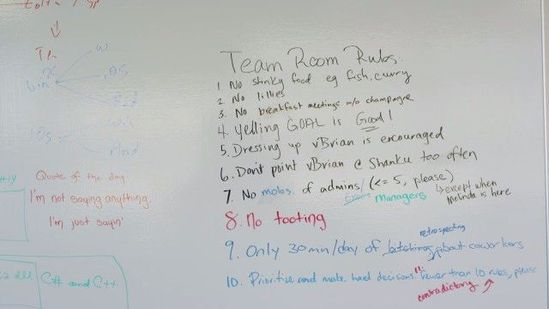 Team Room Rules.
1 No stinky food eg fish, curry
2 No lillies
3. No breakfast meetings w/o champagne
4. Yelling GOAL is Good!
5. Dressing up vBrian is encouraged
6. Don't point vBrian @ Shanku too often
7. No mobs of admins/ (<= 5, please)
managers
except when
Melinda is here
8. No tooting
retrospecting
9. Only 30min/day of bitching about coworkers
10. Prioritize and make hard decisions "fewer than 10 rules, please
contradictory
Quote of the day
I'm not saying anything.
I'm just sayin'
C# and C++